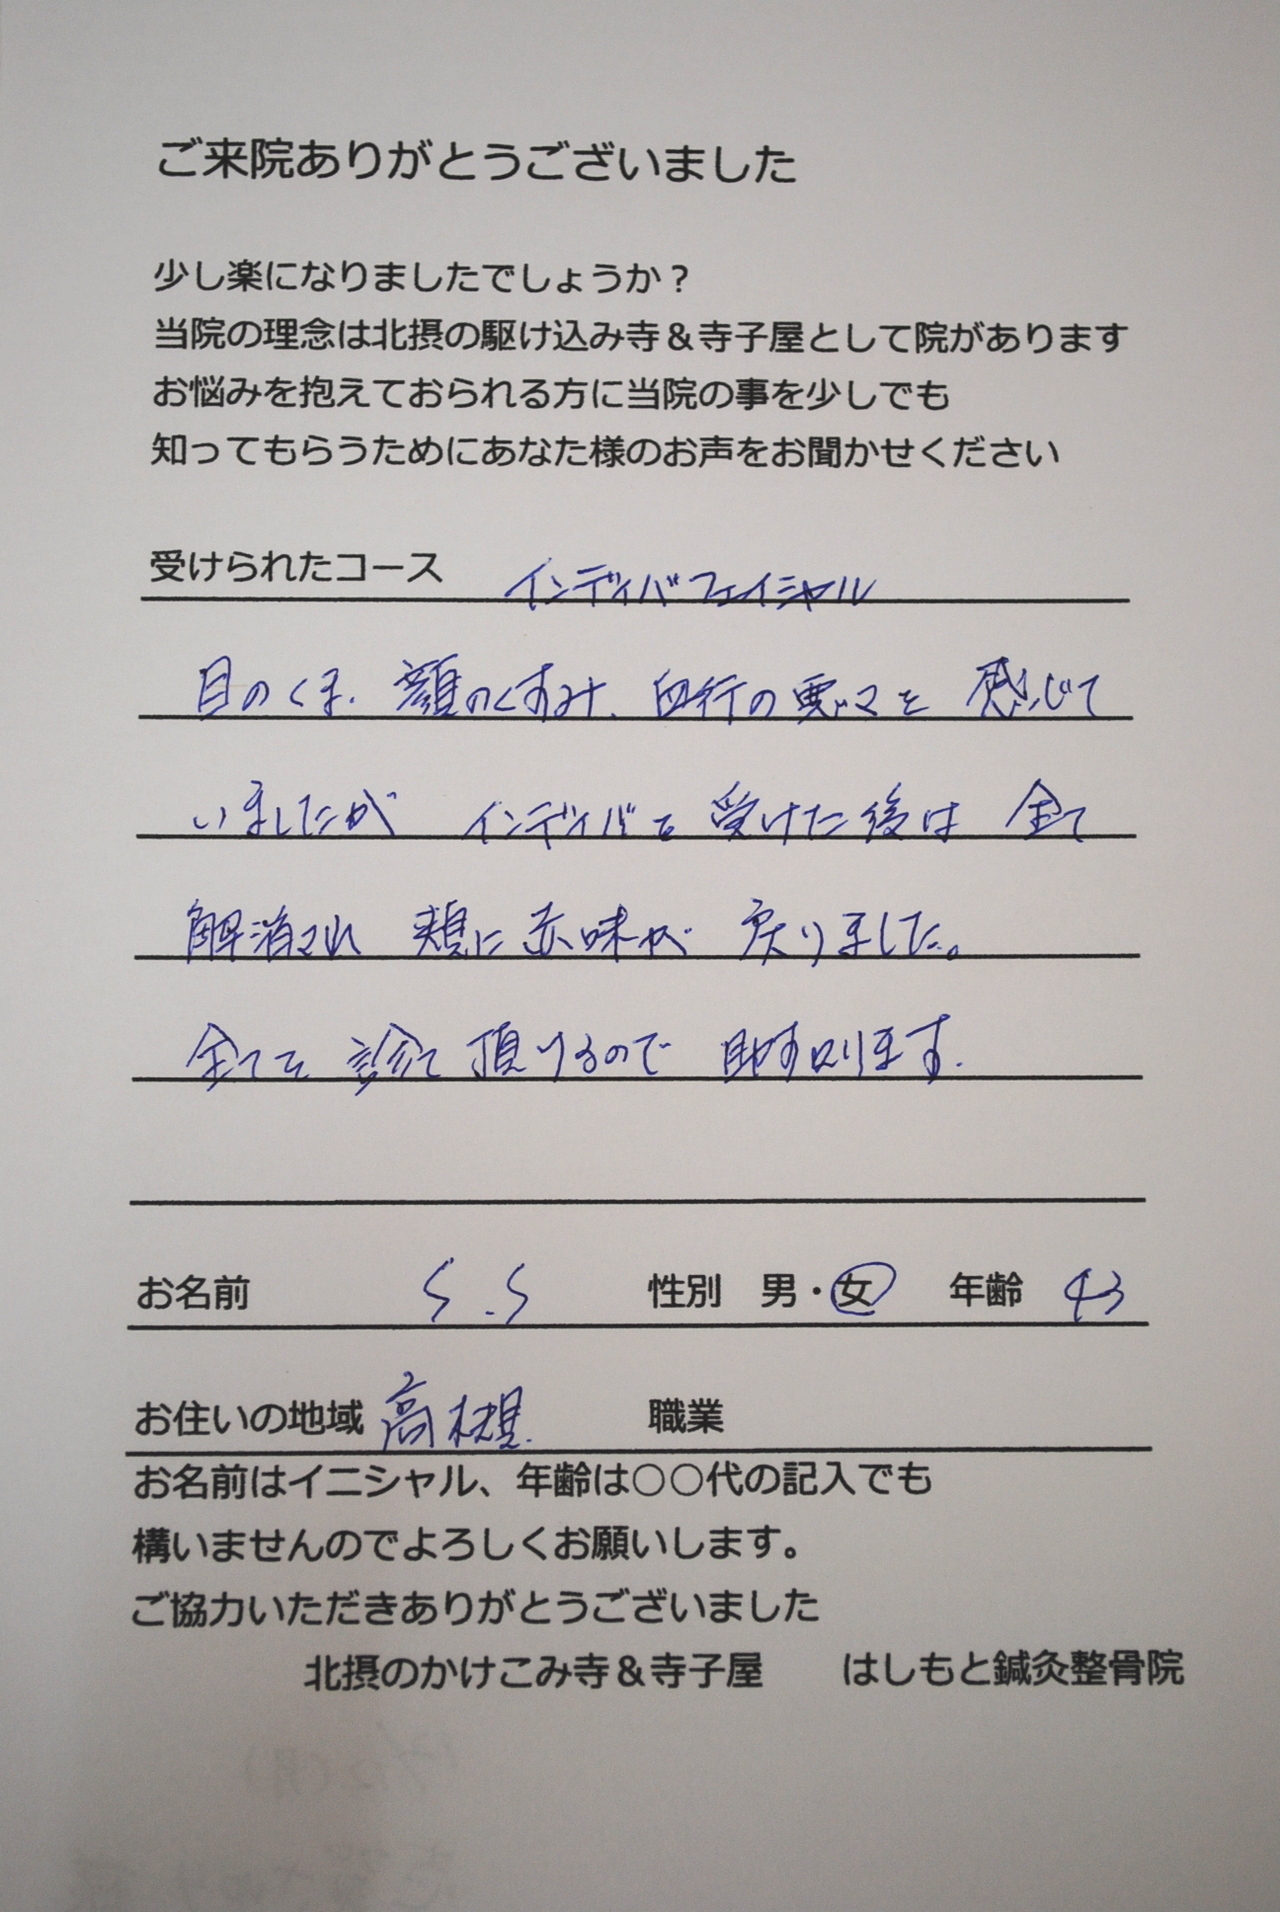 ご来院ありがとうございました
少し楽になりましたでしょうか？
当院の理念は北摂の駆け込み寺＆寺子屋として院があります
お悩みを抱えておられる方に当院の事を少しでも
知ってもらうためにあなた様のお声をお聞かせください
受けられたコース インディバフェイシャル
目のくま、顔のくすみ、血行の悪さを感じて
いましたが インディバを受けた後は 全て
解消され 頬に赤味が 戻りました。
全てを診て頂けるので 助かります。
お名前 S.S 性別 男・女 年齢 43
お住いの地域 高槻 職業
お名前はイニシャル、年齢は○○代の記入でも
構いませんのでよろしくお願いします。
ご協力いただきありがとうございました
北摂のかけこみ寺＆寺子屋 はしもと鍼灸整骨院